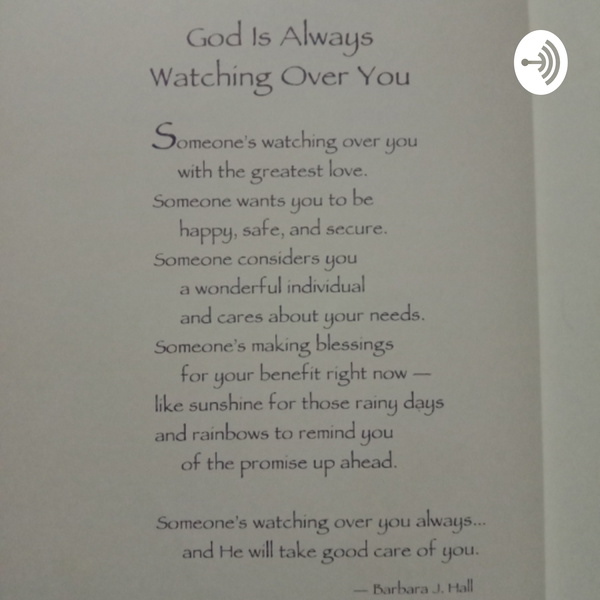 God Is Always
Watching Over You
Someone's watching over you
with the greatest love.
Someone wants you to be
happy, safe, and secure.
Someone considers you
a wonderful individual
and cares about your needs.
Someone's making blessings
for your benefit right now —
like sunshine for those rainy days
and rainbows to remind you
of the promise up ahead.
Someone's watching over you always...
and He will take good care of you.
— Barbara J. Hall